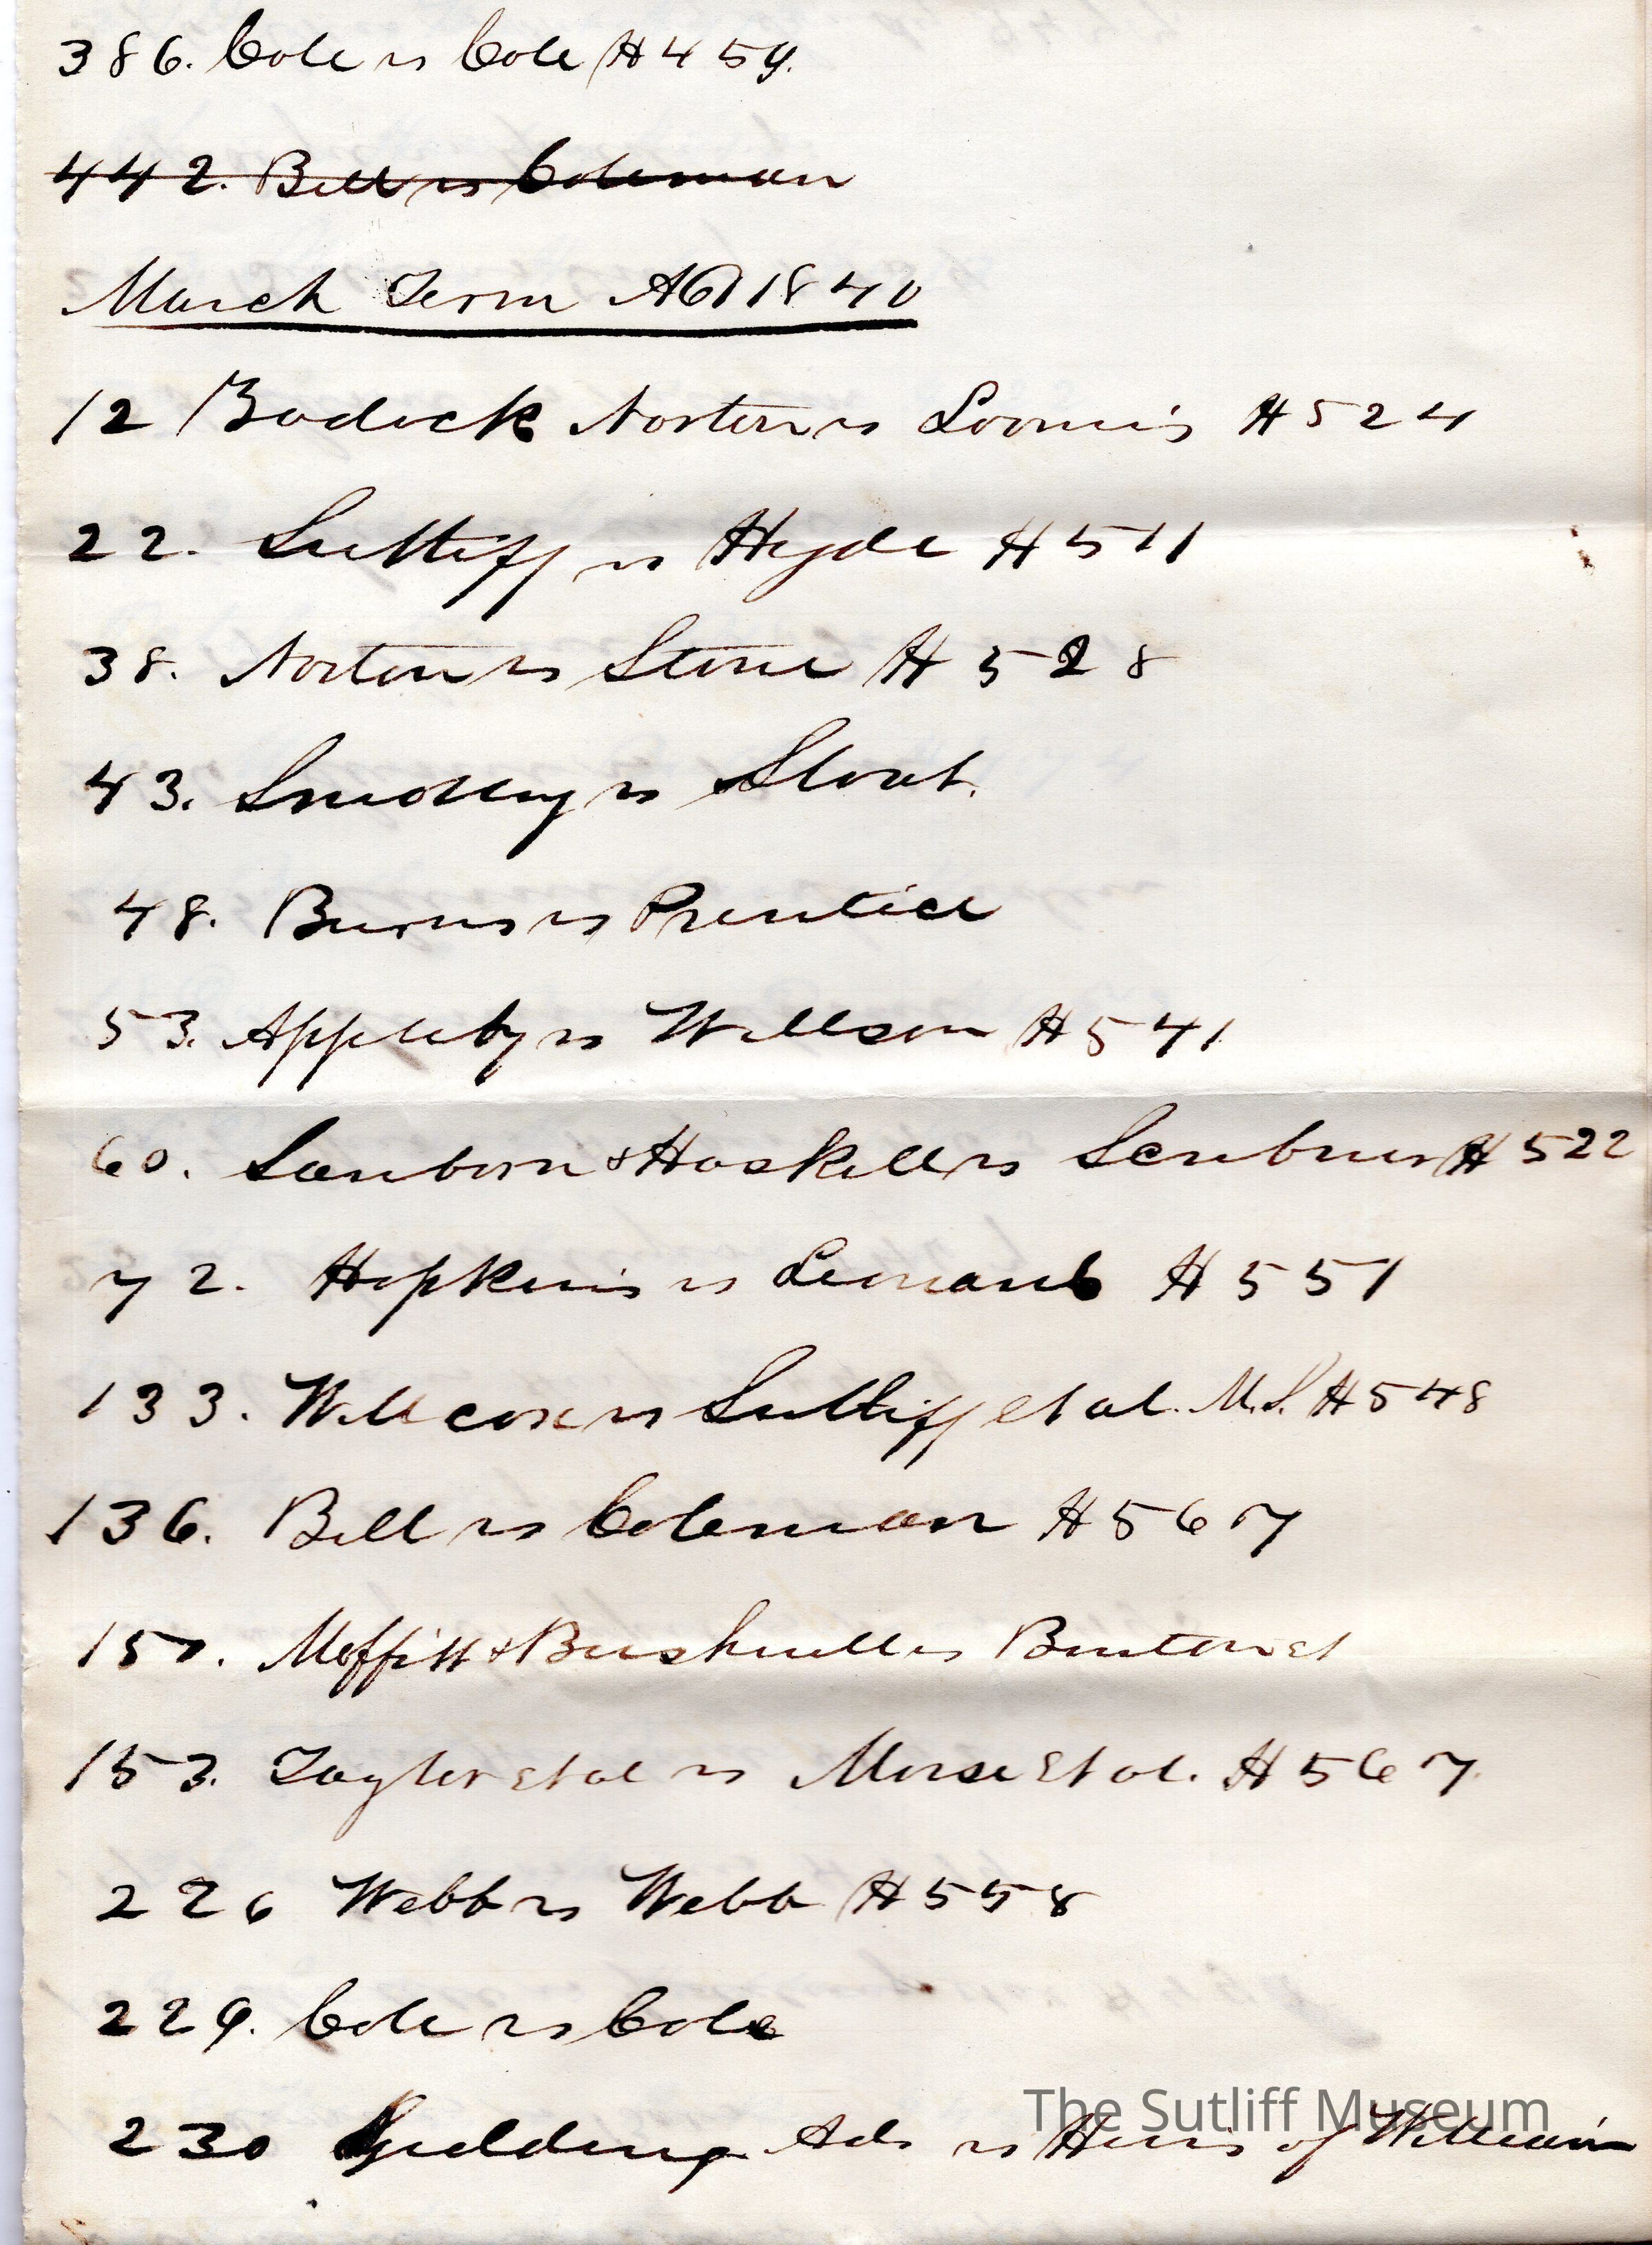 386. Cole vs Cole H 459.
442. Bell vs Coleman
March Term AD 1840
12 Bodick Norton vs Loomis H 524
22. Sutliff vs Hyde H 511
38. Norton vs Stone H 528
43. vs Stout.
48. Burns vs Prentice
53. Appleby vs Willson H 541
60. Sanborn & Haskell vs Scribner H 522
72. Hopkins vs Leonard H 551
133. Willcox vs Sutliff et al. M.S. H 548
136. Bell vs Coleman H 567
150. Moffitt & Bushnell vs Burton et
153. Taylor et al vs Morse et al. H 567.
226 Webb vs Webb H 558
229. Cole vs Cole
230 Spelding Ads vs Heirs of William
The Sutliff Museum